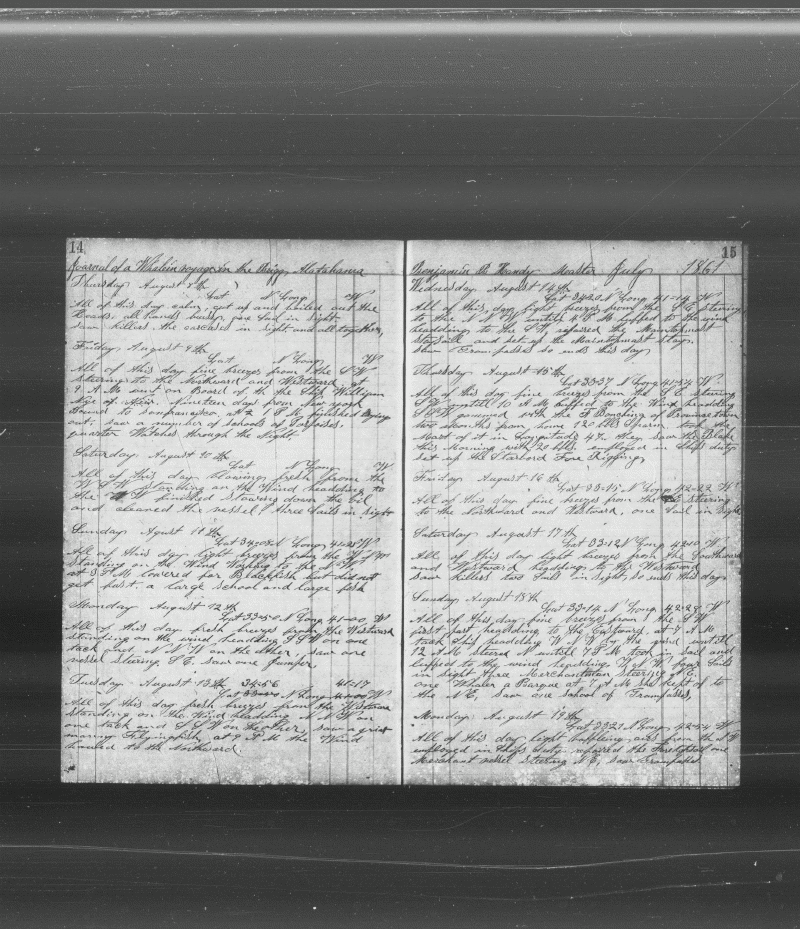 14
Journal of a Whalein voyage in the Brigg Alatahama
Thursday August 8th
Lat N Long W
All of this day calm, got up and bailed out the
Heads, all hands one Sail in sight
Saw Killers, the carcased in sight and all together
Friday August 9th
Lat N Long W
All of this day fine breezes from the S W
Steering to the Northward and Westward at
9 A M went on Board of the Ship William
Nye of Nineteen days from New york
bound to Sanfrancisco at 2 P M finished trying
out, saw a number of Schools of Porpoises.
quarter Watches through the Night,
Saturday August 10th
Lat N Long W
All of this day blowing fresh from the
W S W standing on the Wind headding to
the N W finished stowing down the Oil
and cleaned the vessel, three Sails in sight
Sunday Agust 11th
Lat N Long 41-25 W
All of this day light breezes from the
Standing on the Wind to the N W
at 3 P M lowered for Blackfish but did not
get fast. a large school and large fish
Monday August 12th
Lat 33-50 N Long 41-00 W
All of this day fresh breezes from the Westward
standing on the wind headding S S W on one
tack and N N W on the other, saw one
vessel steering S E. saw one Jumper.
Tuesday August 13th 34-56 41-17
Lat N Long W
All of this day fresh breezes from the Westward
Standing on the Wind headding N N W on
one tack and S S W on the other, saw a great
many at 9 A M the Wind
hauled to the Northward.
15
Benjamin B. Handy Master July 1861
Wednesday August 14th
Lat 34-20 N Long 41-19 W
All of this day light breezes from the steering
to the N W untill 4 P M luffed to the wind
headding to the S W, repaired the Maintopmast
Staysail and set up the Maintopmast Stays.
Saw Grampusses so ends this day
Thursday August 15th
Lat 33-37 N Long 41-54 W
All of this day fine breezes from the S E steering
S W untill 10 A M luffed to the Wind headding
S W gammed with the
two months from home 120 bbls Sperm. took the
Most of it in Longitude 47. they saw the
this Morning with 20 bbls. employed in Ships duty
set up the Starbord Fore Rigging,
Friday August 16th
Lat 33-15 N Long 42-22 W
All of this day fine breezes from the S E steering
to the Northward and Westward, one Sail in Sight
Saturday August 17th
Lat 33-12 N Long 42-10 W
All of this day light breezes from the Southward
and Westward headding to the Westward
Saw Killers two Sails in sight, so ends this day
Sunday August 18th
Lat 33-14 N Long 42-28 W
All of this day fine breezes from the S W
first part headding to the Eastward, at 7 A M
tacked Ship headding W N W by the wind untill
12 A M steered N untill 7 P M took in sail and
luffed to the wind headding W N W four Sails
in sight three Merchantmen steering N E.
one Whaler a Barque at 7 A M she kept off to
the N E, saw one School of Grampusses,
Monday August 19th
Lat 33-21 N Long 42-54 W
All of this day light baffling airs from the S W
employed in Ships duty, repaired the Foretopsail one
Merchant vessel steering N E, saw Grampusses